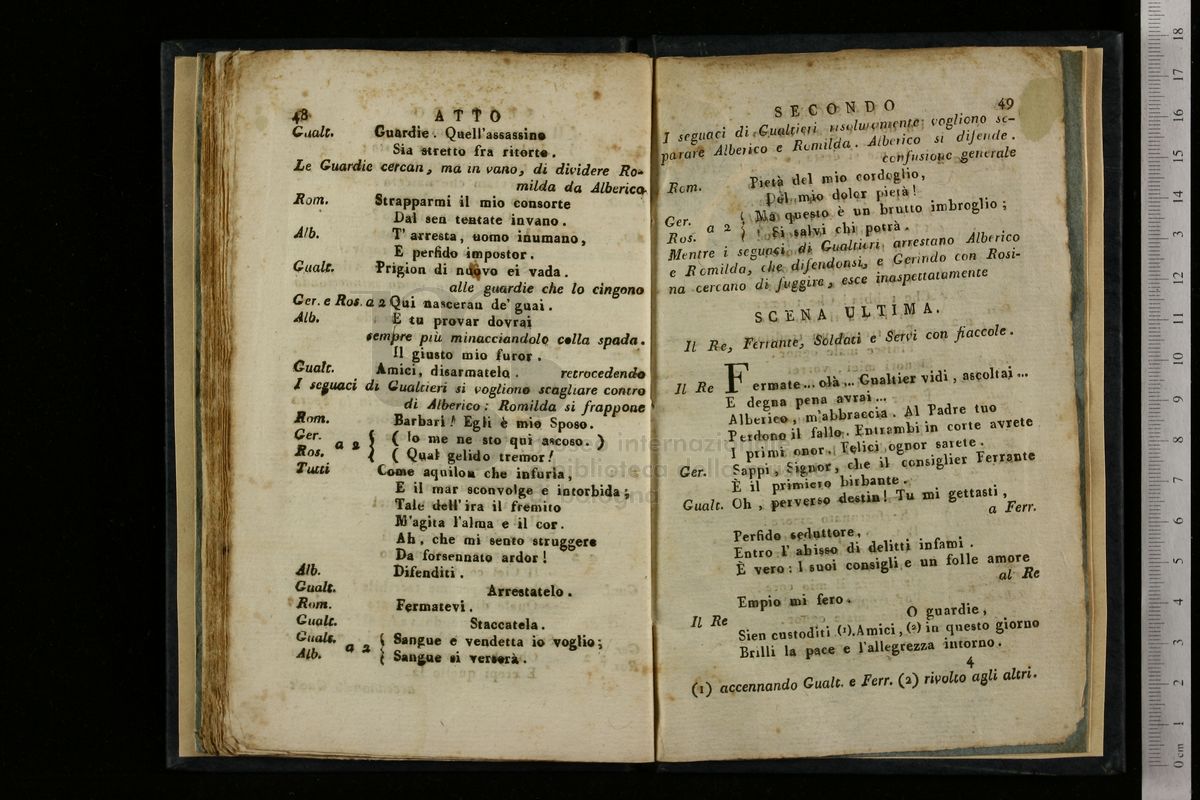 48 ATTO
Gualt. Guardie. Quell'assassino
Sia stretto fra ritorte.
Le Guardie cercan, ma in vano, di dividere Ro-
milda da Alberico.
Rom. Strapparmi il mio consorte
Dal sen tentate invano.
Alb. T'arresta, uomo inumano,
E perfido impostor.
Gualt. Prigion di nuovo ei vada.
alle guardie che lo cingono
Ger. e Ros. a 2 Qui nasceran de' guai.
Alb. E tu provar dovrai
sempre più minacciandolo colla spada.
Il giusto mio furor.
Gualt. Amici, disarmatelo. retrocedendo
I seguaci di Gualtieri si vogliono scagliare contro
di Alberico: Romilda si frappone
Rom. Barbari! Egli è mio Sposo.
Ger. a 2 { ( Io me ne sto qui ascoso. )
Ros. } ( Qual gelido tremor!
Tutti Come aquilon che infuria,
E il mar sconvolge e intorbida;
Tale dell'ira il fremito
M'agita l'alma e il cor.
Ah, che mi sento struggere
Da forsennato ardor!
Alb. Difenditi.
Gualt. Arrestatelo.
Rom. Fermatevi.
Gualt. Staccatela.
Gualt. a 2 { Sangue e vendetta io voglio;
Alb. { Sangue si verserà.
SECONDO 49
I seguaci di Gualtieri risolutamente vogliono se-
parare Alberico e Romilda. Alberico si difende.
confusione generale
Rom. Pietà del mio cordoglio,
Del mio dolor pietà!
Ger. a 2 { Ma questo è un brutto imbroglio;
Ros. } Si salvi chi potrà.
Mentre i seguaci di Gualtieri arrestano Alberico
e Romilda, che difendonsi, e Gerindo con Rosi-
na cercano di fuggire, esce inaspettatamente
SCENA ULTIMA.
Il Re, Ferrante, Soldati e Servi con fiaccole.
Il Re Fermate... olà... Gualtier vidi, ascoltai...
E degna pena avrai...
Alberico, m'abbraccia. Al Padre tuo
Perdono il fallo. Entrambi in corte avrete
I primi onor. Felici ognor sarete.
Ger. Sappi, Signor, che il consiglier Ferrante
È il primiero birbante.
Gualt. Oh, perverso destin! Tu mi gettasti,
a Ferr.
Perfido seduttore,
Entro l'abisso di delitti infami.
È vero: I suoi consigli e un folle amore
al Re
Empio mi fero.
Il Re O guardie,
Sien custoditi (1). Amici, (2) in questo giorno
Brilli la pace e l'allegrezza intorno.
4
(1) accennando Gualt. e Ferr. (2) rivolto agli altri.
museo internazionale
biblioteca della musica
di bologna
0 cm 1 2 3 4 5 6 7 8 9 10 11 12 13 14 15 16 17 18